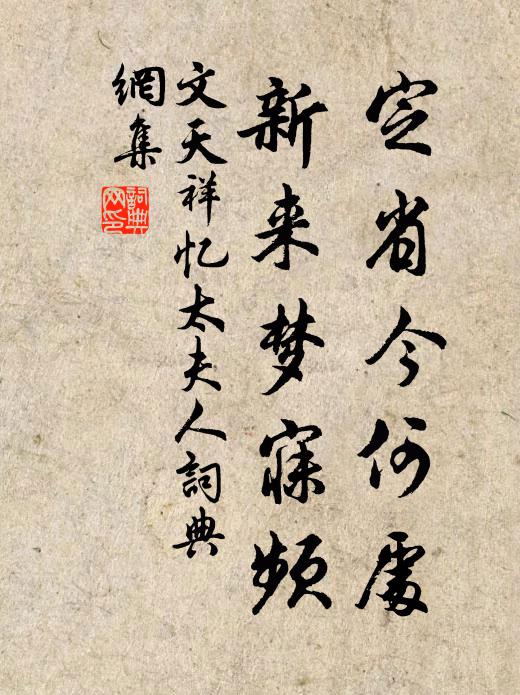 定省今何處
新来梦寐频
文天祥忆太夫人詞典
網集
詞典网印